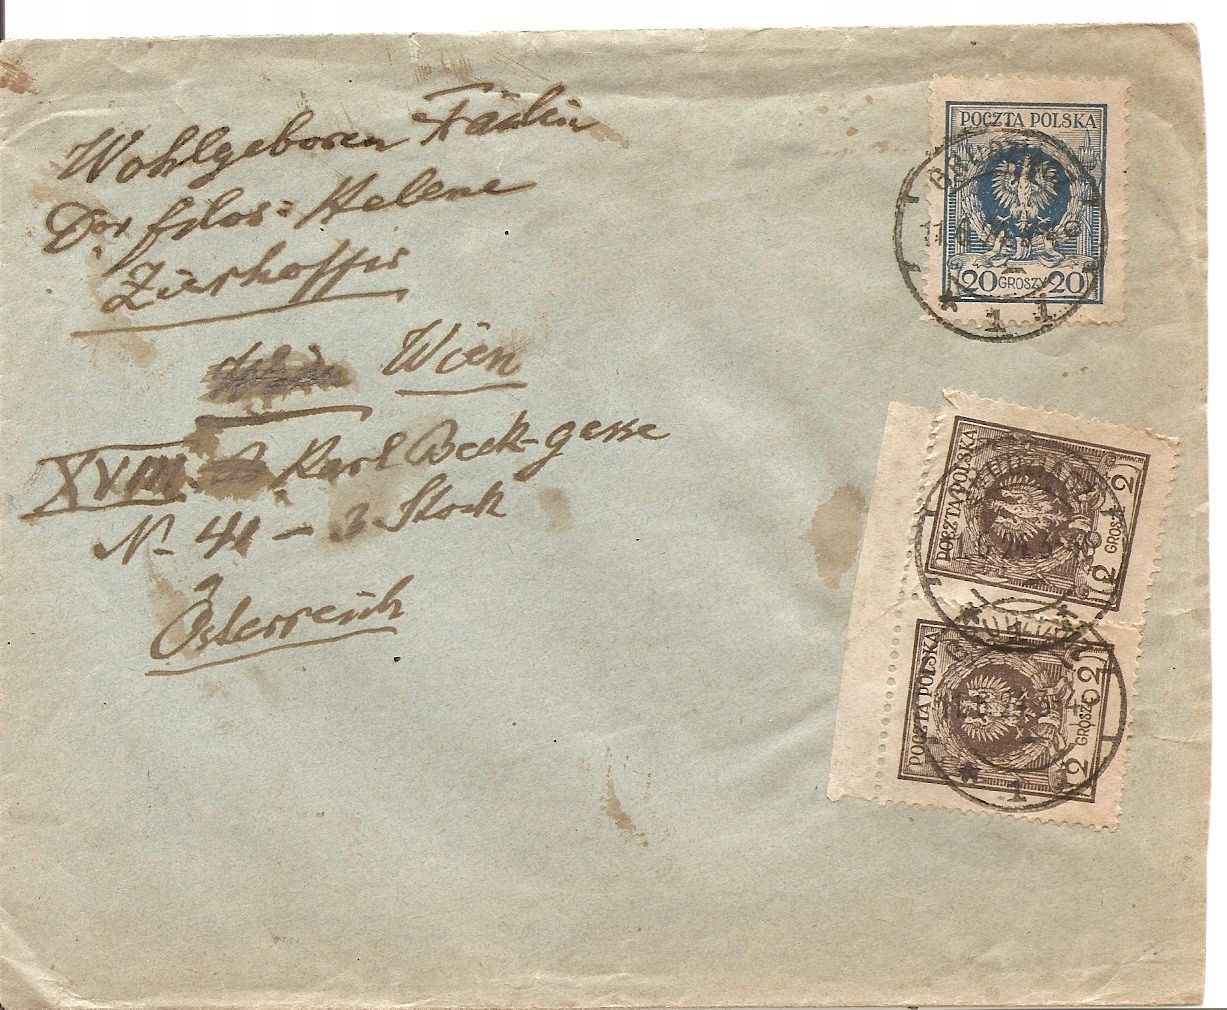 Wohlgeboren Fräulein
Dor filos: Helene
Zierhoffer
Wien
XVIII. Karl Beck-gasse
N- 41 - 3. Stock
Österreich
POCZTA POLSKA
20 GROSZY 20
1
POCZTA POLSKA
2 GROSZE 2
1
POCZTA POLSKA
2 GROSZE 2
1